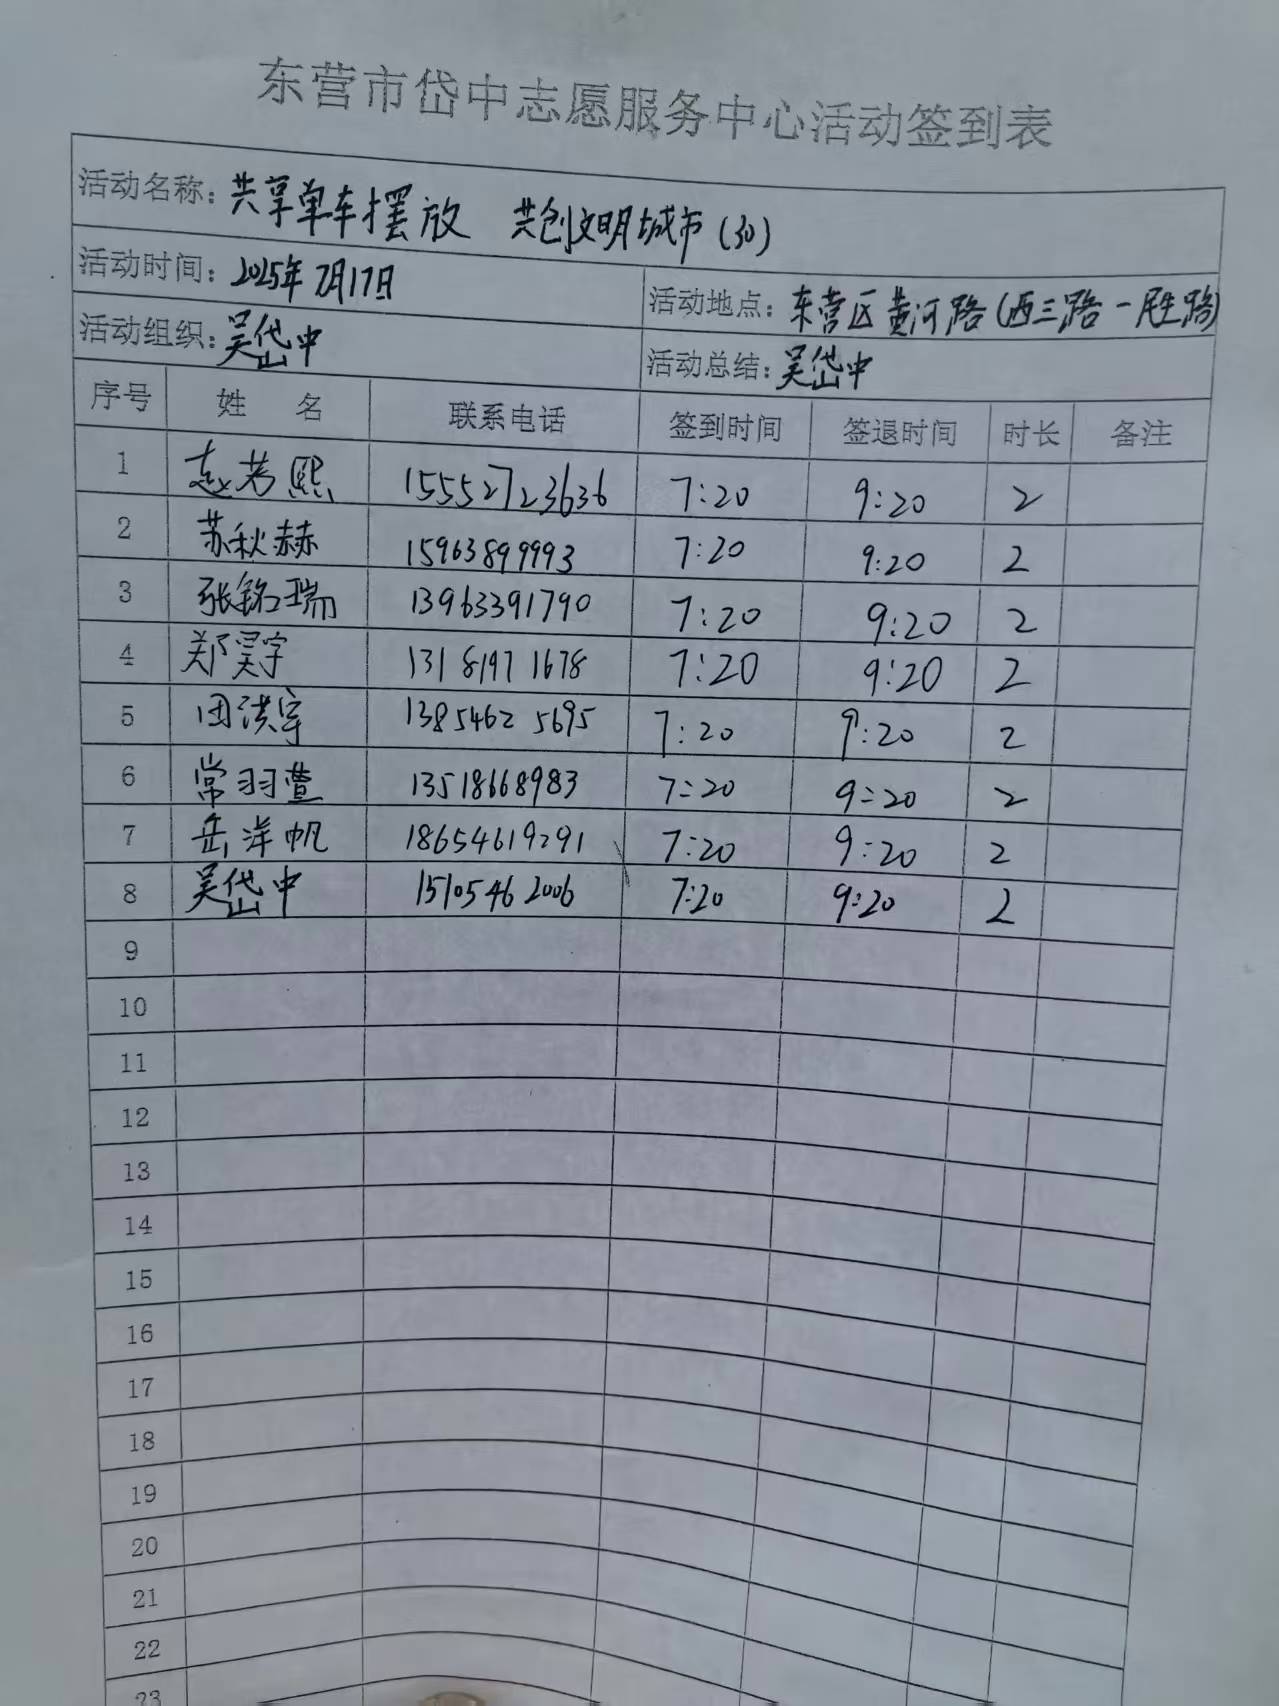 东营市岱中志愿服务中心活动签到表
活动名称：共享单车摆放 共创文明城市（30）
活动时间：2025年7月17日 活动地点：东营区黄河路（西三路－胜路）
活动组织：吴岱中 活动总结：吴岱中
序号 姓 名 联系电话 签到时间 签退时间 时长 备注
1 赵若熙 15552723636 7:20 9:20 2
2 苏秋赫 15963899993 7:20 9:20 2
3 张铭瑞 13963391790 7:20 9:20 2
4 郑昊宇 13181971678 7:20 9:20 2
5 田洪宇 13854625695 7:20 9:20 2
6 常羽萱 13518668983 7:20 9:20 2
7 岳洋帆 18654619291 7:20 9:20 2
8 吴岱中 15105462006 7:20 9:20 2
9
10
11
12
13
14
15
16
17
18
19
20
21
22
23